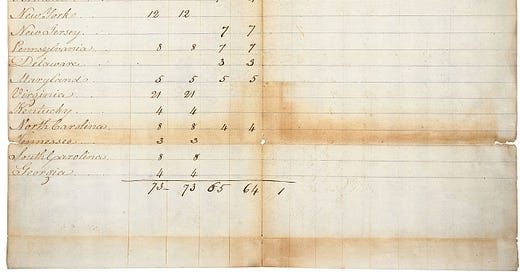 New York 12 12
New Jersey 7 7
Pennsylvania 8 8 7 7
Delaware 3 3
Maryland 5 5 5 5
Virginia 21 21
Kentucky 4 4
North Carolina 8 8 4 4
Tennessee 3 3
South Carolina 8 8
Georgia 4 4
73 73 65 64 1